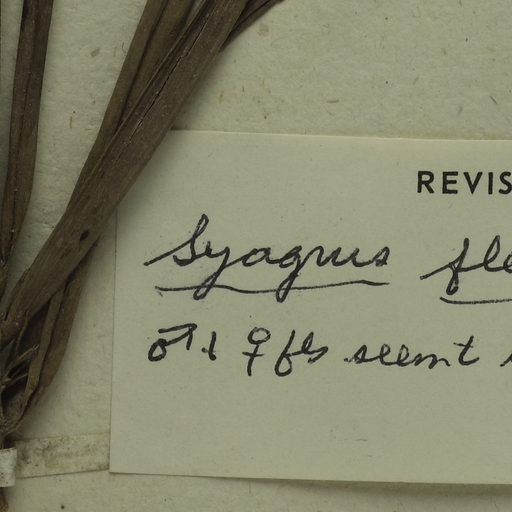 REVIS
Syagrus fle
♂ & ♀ fls seem t